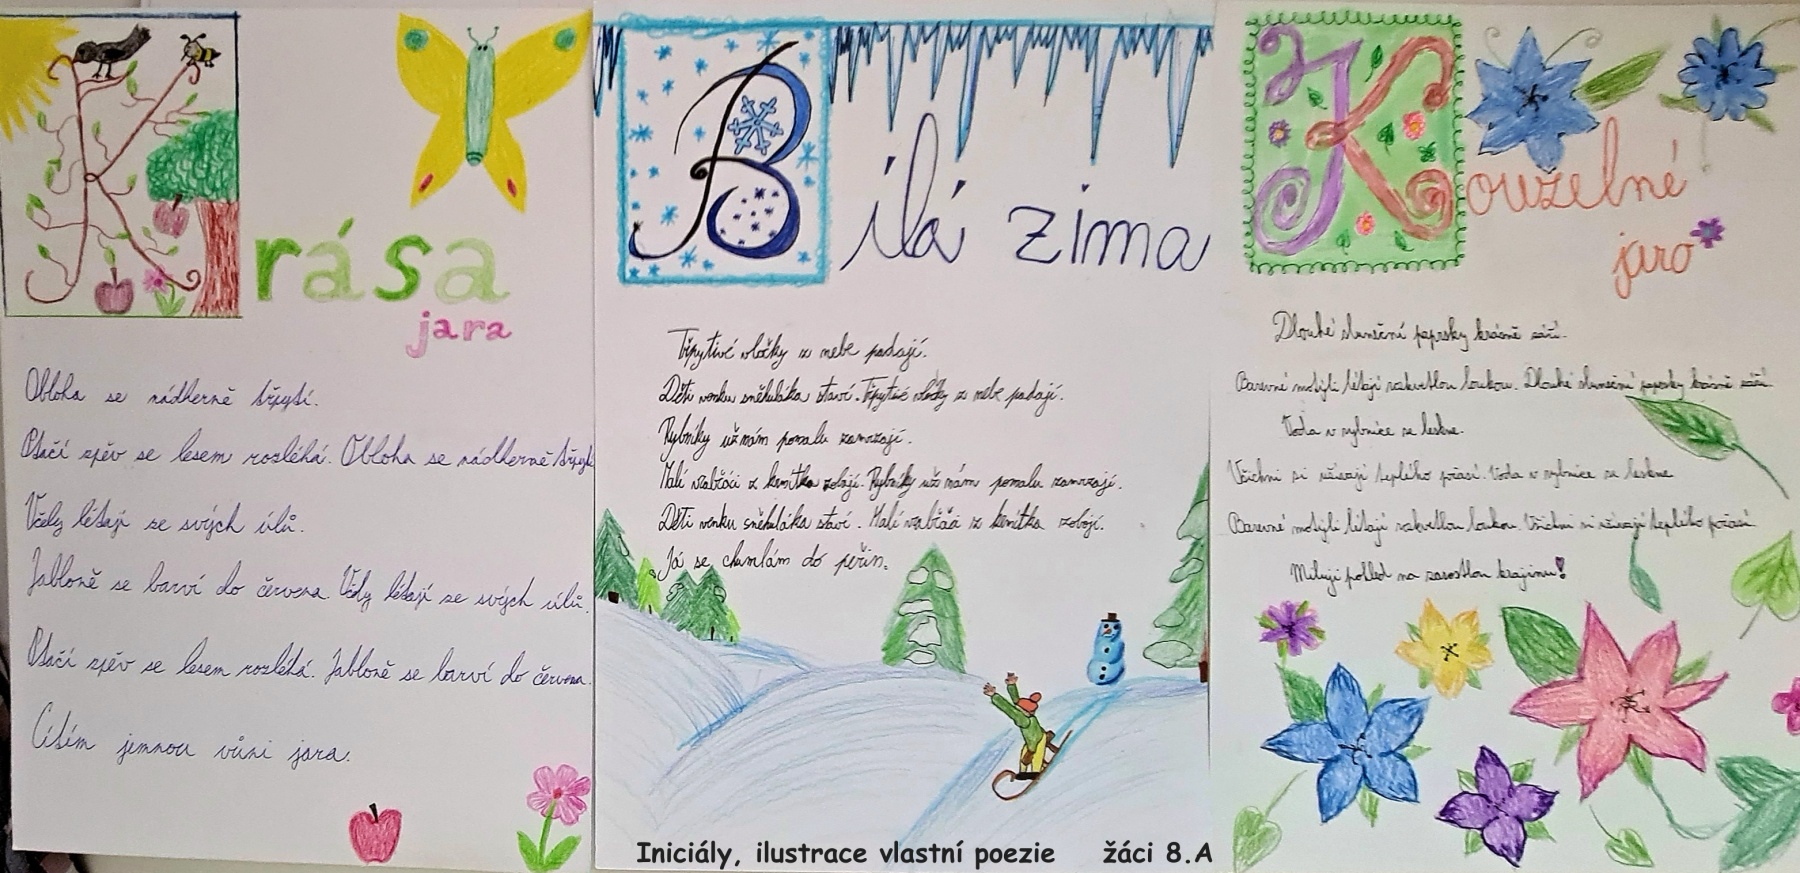 Krása
jara
Obloha se nádherně třpytí.
Ptačí zpěv se lesem rozléhá. Obloha se nádherně třpytí
Včely létají ze svých úlů.
Jabloně se barví do červena. Včely létají ze svých úlů.
Ptačí zpěv se lesem rozléhá. Jabloně se barví do červena.
Cítím jemnou vůni jara.
Bílá zima
Třpytivé vločky z nebe padají.
Děti venku sněhuláka staví. Třpytivé vločky z nebe padají.
Rybníky už nám pomalu zamrzají.
Malí vrabčáci z krmítka zobají. Rybníky už nám pomalu zamrzají.
Děti venku sněhuláka staví. Malí vrabčáci z krmítka zobají.
Já se chumlám do peřin.
Kouzelné
jaro
Dlouhé sluneční paprsky krásně září.
Barevné motýli létají rozkvetlou loukou. Dlouhé sluneční paprsky krásně září.
Voda v rybníce se leskne.
Všichni si užívají teplého počasí. Voda v rybníce se leskne
Barevné motýli létají rozkvetlou loukou. Všichni si užívají teplého počasí.
Miluji pohled na zarostlou krajinu!
Iniciály, ilustrace vlastní poezie žáci 8.A